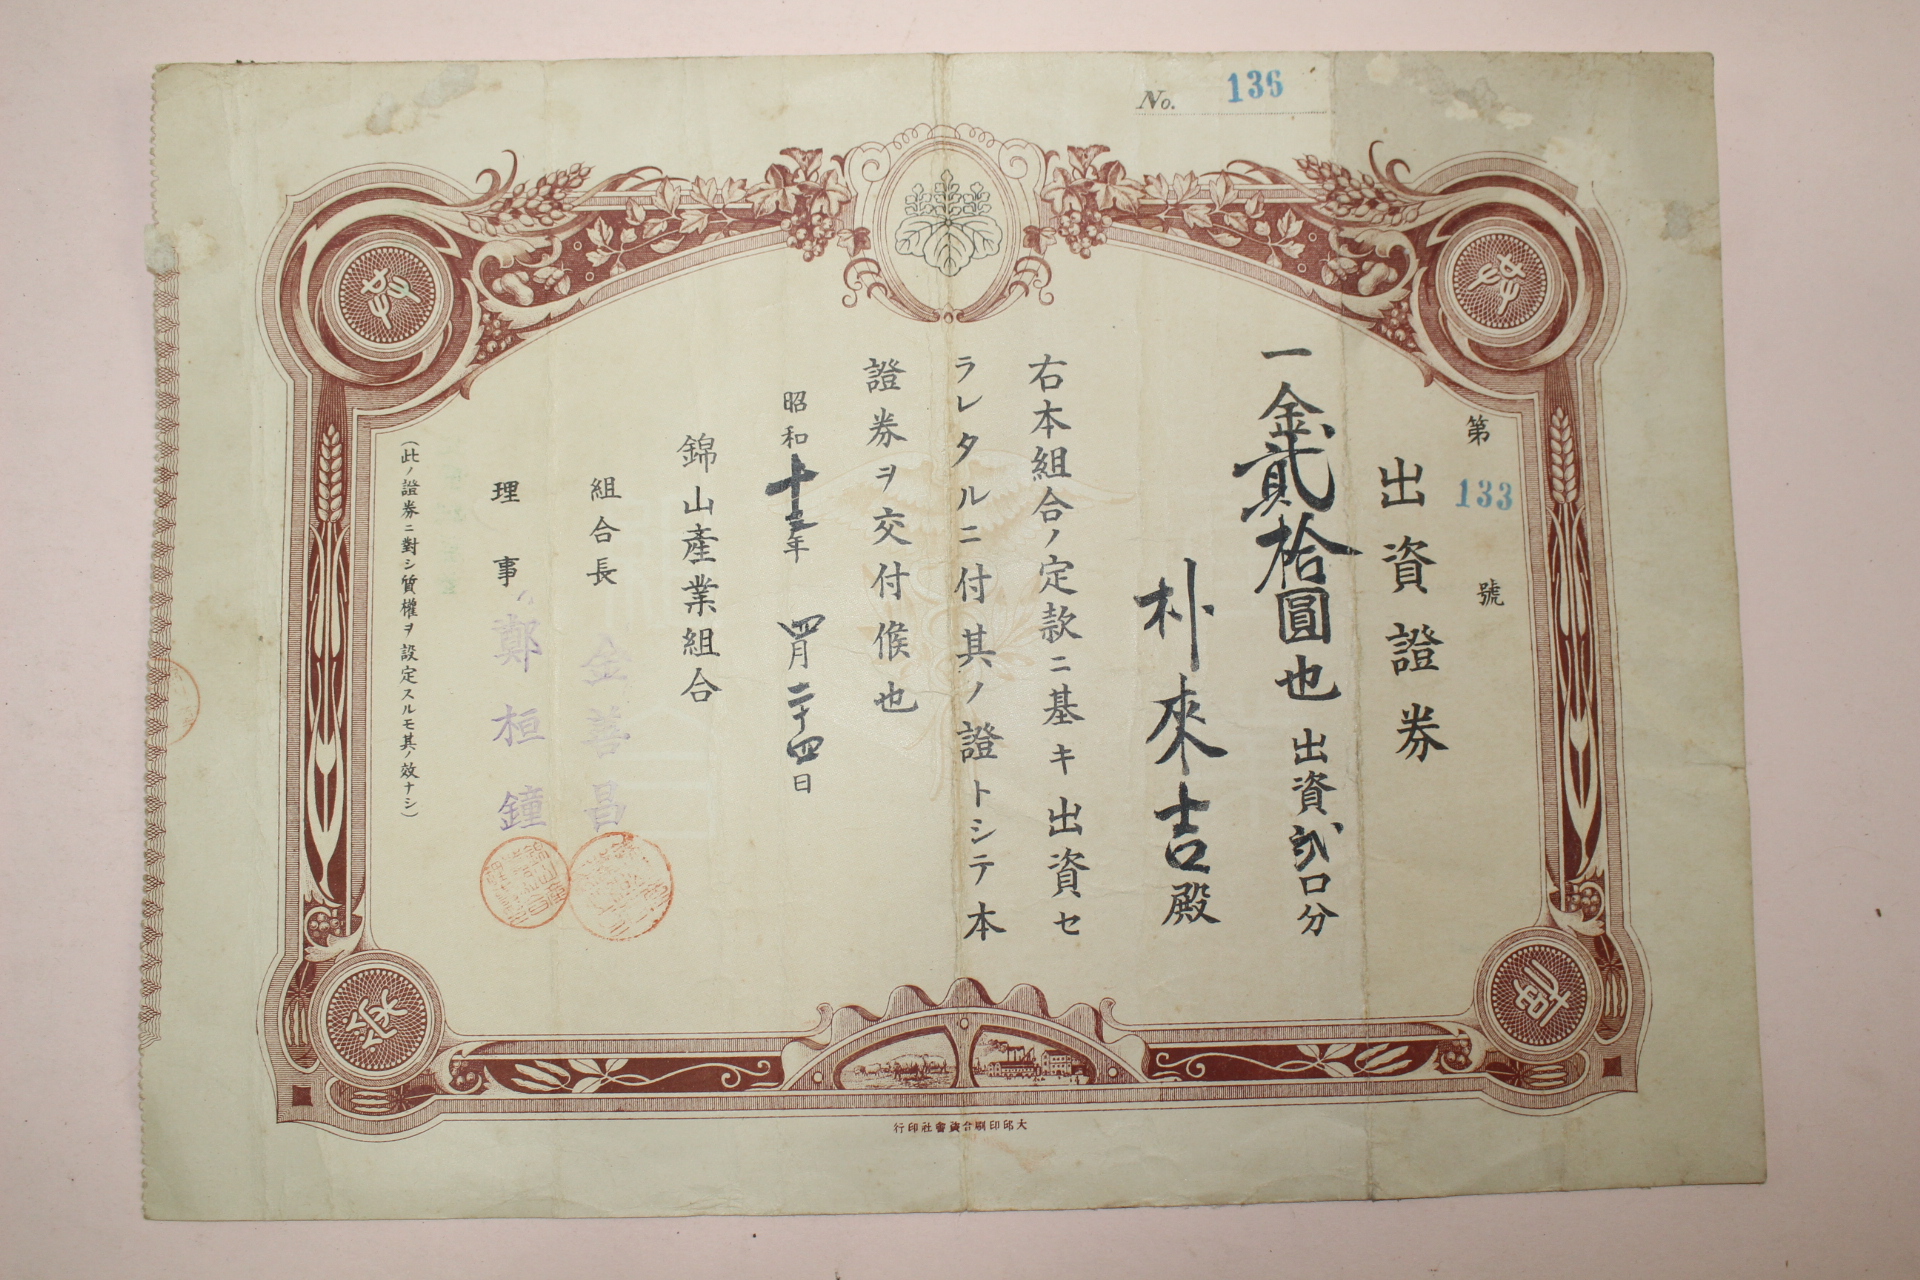 No. 136
第 133 號
出資證券
一金貳拾圓也 出資貳口分
朴來吉殿
右本組合ノ定款ニ基キ出資セ
ラレタルニ付其ノ證トシテ本
證券ヲ交付候也
昭和十三年 四月二十四日
錦山產業組合
組合長 金善昌
理事 鄭桓鐘
(此ノ證券ニ對シ質權ヲ設定スルモ其ノ效ナシ)
大邱印刷合資會社印行